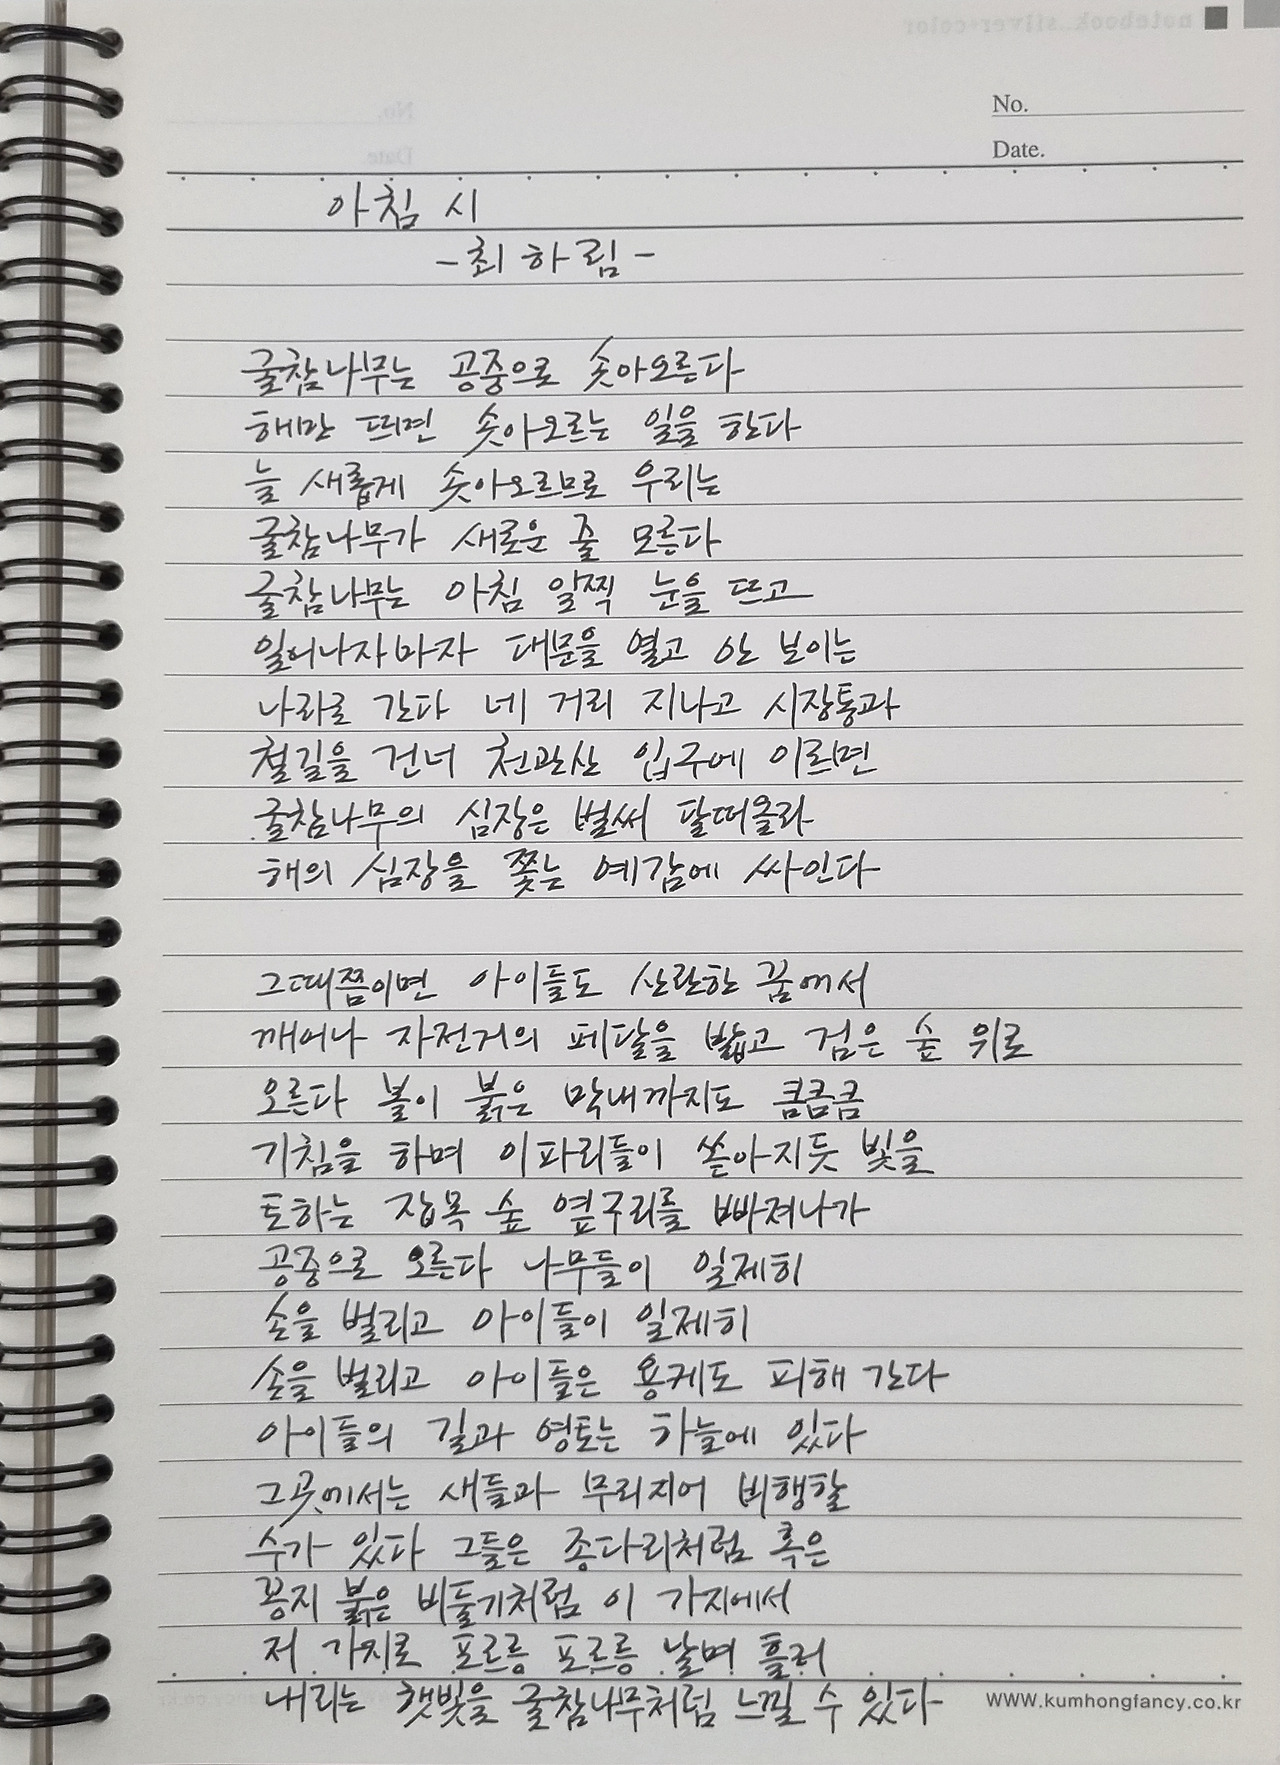 notebook..silver+color
No.
Date.
아침 시
-최하림-
굴참나무는 공중으로 솟아오른다
해만 뜨면 솟아오르는 일을 한다
늘 새롭게 솟아오르므로 우리는
굴참나무가 새로운 줄 모른다
굴참나무는 아침 일찍 눈을 뜨고
일어나자마자 대문을 열고 안 보이는
나라로 간다 네 거리 지나고 시장통과
철길을 건너 천관산 입구에 이르면
굴참나무의 심장은 벌써 팔떠올라
해의 심장을 쫓는 예감에 싸인다
그때쯤이면 아이들도 산란한 꿈에서
깨어나 자전거의 페달을 밟고 검은 숲 위로
오른다 볼이 붉은 막내까지도 큼큼큼
기침을 하며 이파리들이 쏟아지듯 빛을
토하는 잡목 숲 옆구리를 빠져나가
공중으로 오른다 나무들이 일제히
손을 벌리고 아이들이 일제히
손을 벌리고 아이들은 용케도 피해 간다
아이들의 길과 영토는 하늘에 있다
그곳에서는 새들과 무리지어 비행할
수가 있다 그들은 종다리처럼 혹은
꽁지 붉은 비둘기처럼 이 가지에서
저 가지로 포르릉 포르릉 날며 흘러
내리는 햇빛을 굴참나무처럼 느낄 수 있다
www.kumhongfancy.co.kr